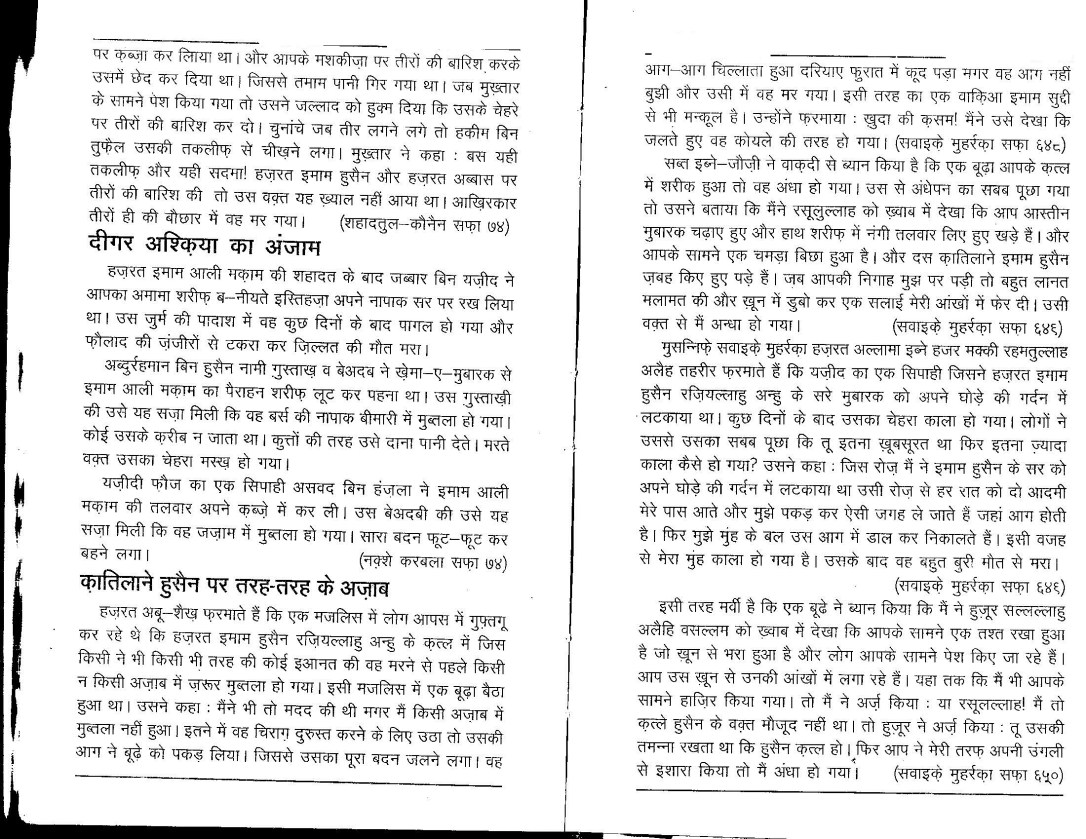 पर क़ब्ज़ा कर लिाया था। और आपके मशकीज़ा पर तीरों की बारिश करके
उसमें छेद कर दिया था। जिससे तमाम पानी गिर गया था। जब मुख़्तार
के सामने पेश किया गया तो उसने जल्लाद को हुक्म दिया कि उसके चेहरे
पर तीरों की बारिश कर दो। चुनांचे जब तीर लगने लगे तो हकीम बिन
तुफ़ैल उसकी तकलीफ़ से चीख़ने लगा। मुख़्तार ने कहा : बस यही
तकलीफ़ और यही सदमा! हज़रत इमाम हुसैन और हज़रत अब्बास पर
तीरों की बारिश की तो उस वक़्त यह ख़्याल नहीं आया था। आख़िरकार
तीरों ही की बौछार में वह मर गया। (शहादतुल–कौनैन सफ़ा ७४)
दीगर अश्क़िया का अंजाम
हज़रत इमाम आली मक़ाम की शहादत के बाद जब्बार बिन यज़ीद ने
आपका अमामा शरीफ़ ब–नीयते इस्तिहज़ा अपने नापाक सर पर रख लिया
था। उस जुर्म की पादाश में वह कुछ दिनों के बाद पागल हो गया और
फ़ौलाद की ज़ंजीरों से टकरा कर ज़िल्लत की मौत मरा।
अब्दुर्रहमान बिन हुसैन नामी गुस्ताख़ व बेअदब ने खे़मा–ए–मुबारक से
इमाम आली मक़ाम का पैराहन शरीफ़ लूट कर पहना था। उस गुस्ताख़ी
की उसे यह सज़ा मिली कि वह बर्स की नापाक बीमारी में मुब्तला हो गया।
कोई उसके क़रीब न जाता था। कुत्तों की तरह उसे दाना पानी देते। मरते
वक़्त उसका चेहरा मस्ख़ हो गया।
यज़ीदी फ़ौज का एक सिपाही असवद बिन हंज़ला ने इमाम आली
मक़ाम की तलवार अपने क़ब्ज़े में कर ली। उस बेअदबी की उसे यह
सज़ा मिली कि वह जज़ाम में मुब्तला हो गया। सारा बदन फूट–फूट कर
बहने लगा। (नक़्शे करबला सफ़ा ७४)
क़ातिलाने हुसैन पर तरह-तरह के अज़ाब
हज़रत अबू–शैख़ फ़रमाते हैं कि एक मजलिस में लोग आपस में गुफ़्तगू
कर रहे थे कि हज़रत इमाम हुसैन रज़ियल्लाहु अन्हु के क़त्ल में जिस
किसी ने भी किसी भी तरह की कोई इआनत की वह मरने से पहले किसी
न किसी अज़ाब में ज़रूर मुब्तला हो गया। इसी मजलिस में एक बूढ़ा बैठा
हुआ था। उसने कहा : मैंने भी तो मदद की थी मगर मैं किसी अज़ाब में
मुब्तला नहीं हुआ। इतने में वह चिराग़ दुरुस्त करने के लिए उठा तो उसकी
आग ने बूढ़े को पकड़ लिया। जिससे उसका पूरा बदन जलने लगा। वह
आग–आग चिल्लाता हुआ दरियाए फ़ुरात में कूद पड़ा मगर वह आग नहीं
बुझी और उसी में वह मर गया। इसी तरह का एक वाक़िआ इमाम सुद्दी
से भी मन्कूल है। उन्होंने फ़रमाया : ख़ुदा की क़सम! मैंने उसे देखा कि
जलते हुए वह कोयले की तरह हो गया। (सवाइक़े मुहर्रक़ा सफ़ा ६४८)
सब्त इब्ने–जौज़ी ने वाक़दी से ब्यान किया है कि एक बूढ़ा आपके क़त्ल
में शरीक हुआ तो वह अंधा हो गया। उस से अंधेपन का सबब पूछा गया
तो उसने बताया कि मैंने रसूलुल्लाह को ख़्वाब में देखा कि आप आस्तीन
मुबारक चढ़ाए हुए और हाथ शरीफ़ में नंगी तलवार लिए हुए खड़े हैं। और
आपके सामने एक चमड़ा बिछा हुआ है। और दस क़ातिलाने इमाम हुसैन
ज़बह किए हुए पड़े हैं। जब आपकी निगाह मुझ पर पड़ी तो बहुत लानत
मलामत की और ख़ून में डुबो कर एक सलाई मेरी आंखों में फेर दी। उसी
वक़्त से मैं अन्धा हो गया। (सवाइक़े मुहर्रक़ा सफ़ा ६४६)
मुसन्निफ़े सवाइक़े मुहर्रक़ा हज़रत अल्लामा इब्ने हजर मक्की रहमतुल्लाह
अलैह तहरीर फ़रमाते हैं कि यज़ीद का एक सिपाही जिसने हज़रत इमाम
हुसैन रज़ियल्लाहु अन्हु के सरे मुबारक को अपने घोड़े की गर्दन में
लटकाया था। कुछ दिनों के बाद उसका चेहरा काला हो गया। लोगों ने
उससे उसका सबब पूछा कि तू इतना ख़ूबसूरत था फिर इतना ज़्यादा
काला कैसे हो गया? उसने कहा : जिस रोज़ मैं ने इमाम हुसैन के सर को
अपने घोड़े की गर्दन में लटकाया था उसी रोज़ से हर रात को दो आदमी
मेरे पास आते और मुझे पकड़ कर ऐसी जगह ले जाते हैं जहां आग होती
है। फिर मुझे मुंह के बल उस आग में डाल कर निकालते हैं। इसी वजह
से मेरा मुंह काला हो गया है। उसके बाद वह बहुत बुरी मौत से मरा।
(सवाइक़े मुहर्रक़ा सफ़ा ६४६)
इसी तरह मर्वी है कि एक बूढे ने ब्यान किया कि मैं ने हुज़ूर सल्लल्लाहु
अलैहि वसल्लम को ख़्वाब में देखा कि आपके सामने एक तश्त रखा हुआ
है जो ख़ून से भरा हुआ है और लोग आपके सामने पेश किए जा रहे हैं।
आप उस ख़ून से उनकी आंखों में लगा रहे हैं। यहा तक कि मैं भी आपके
सामने हाज़िर किया गया। तो मैं ने अर्ज़ किया : या रसूलल्लाह! मैं तो
क़त्ले हुसैन के वक़्त मौजूद नहीं था। तो हुज़ूर ने अर्ज़ किया : तू उसकी
तमन्ना रखता था कि हुसैन क़त्ल हो। फिर आप ने मेरी तरफ़ अपनी उंगली
से इशारा किया तो मैं अंधा हो गया। (सवाइक़े मुहर्रक़ा सफ़ा ६५०)